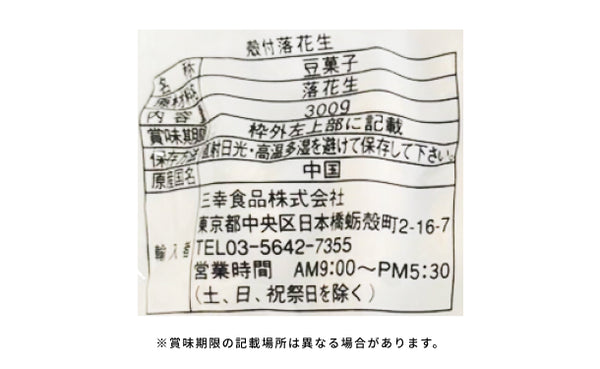 殻付落花生
名 称 豆菓子
原材料 落花生
内容 300g
賞味期限 枠外左上部に記載
保存方法 直射日光・高温多湿を避けて保存して下さい。
原産国名 中国
輸入者 三幸食品株式会社
東京都中央区日本橋蛎殻町2-16-7
TEL03-5642-7355
営業時間 AM9:00～PM5:30
(土、日、祝祭日を除く)
※賞味期限の記載場所は異なる場合があります。